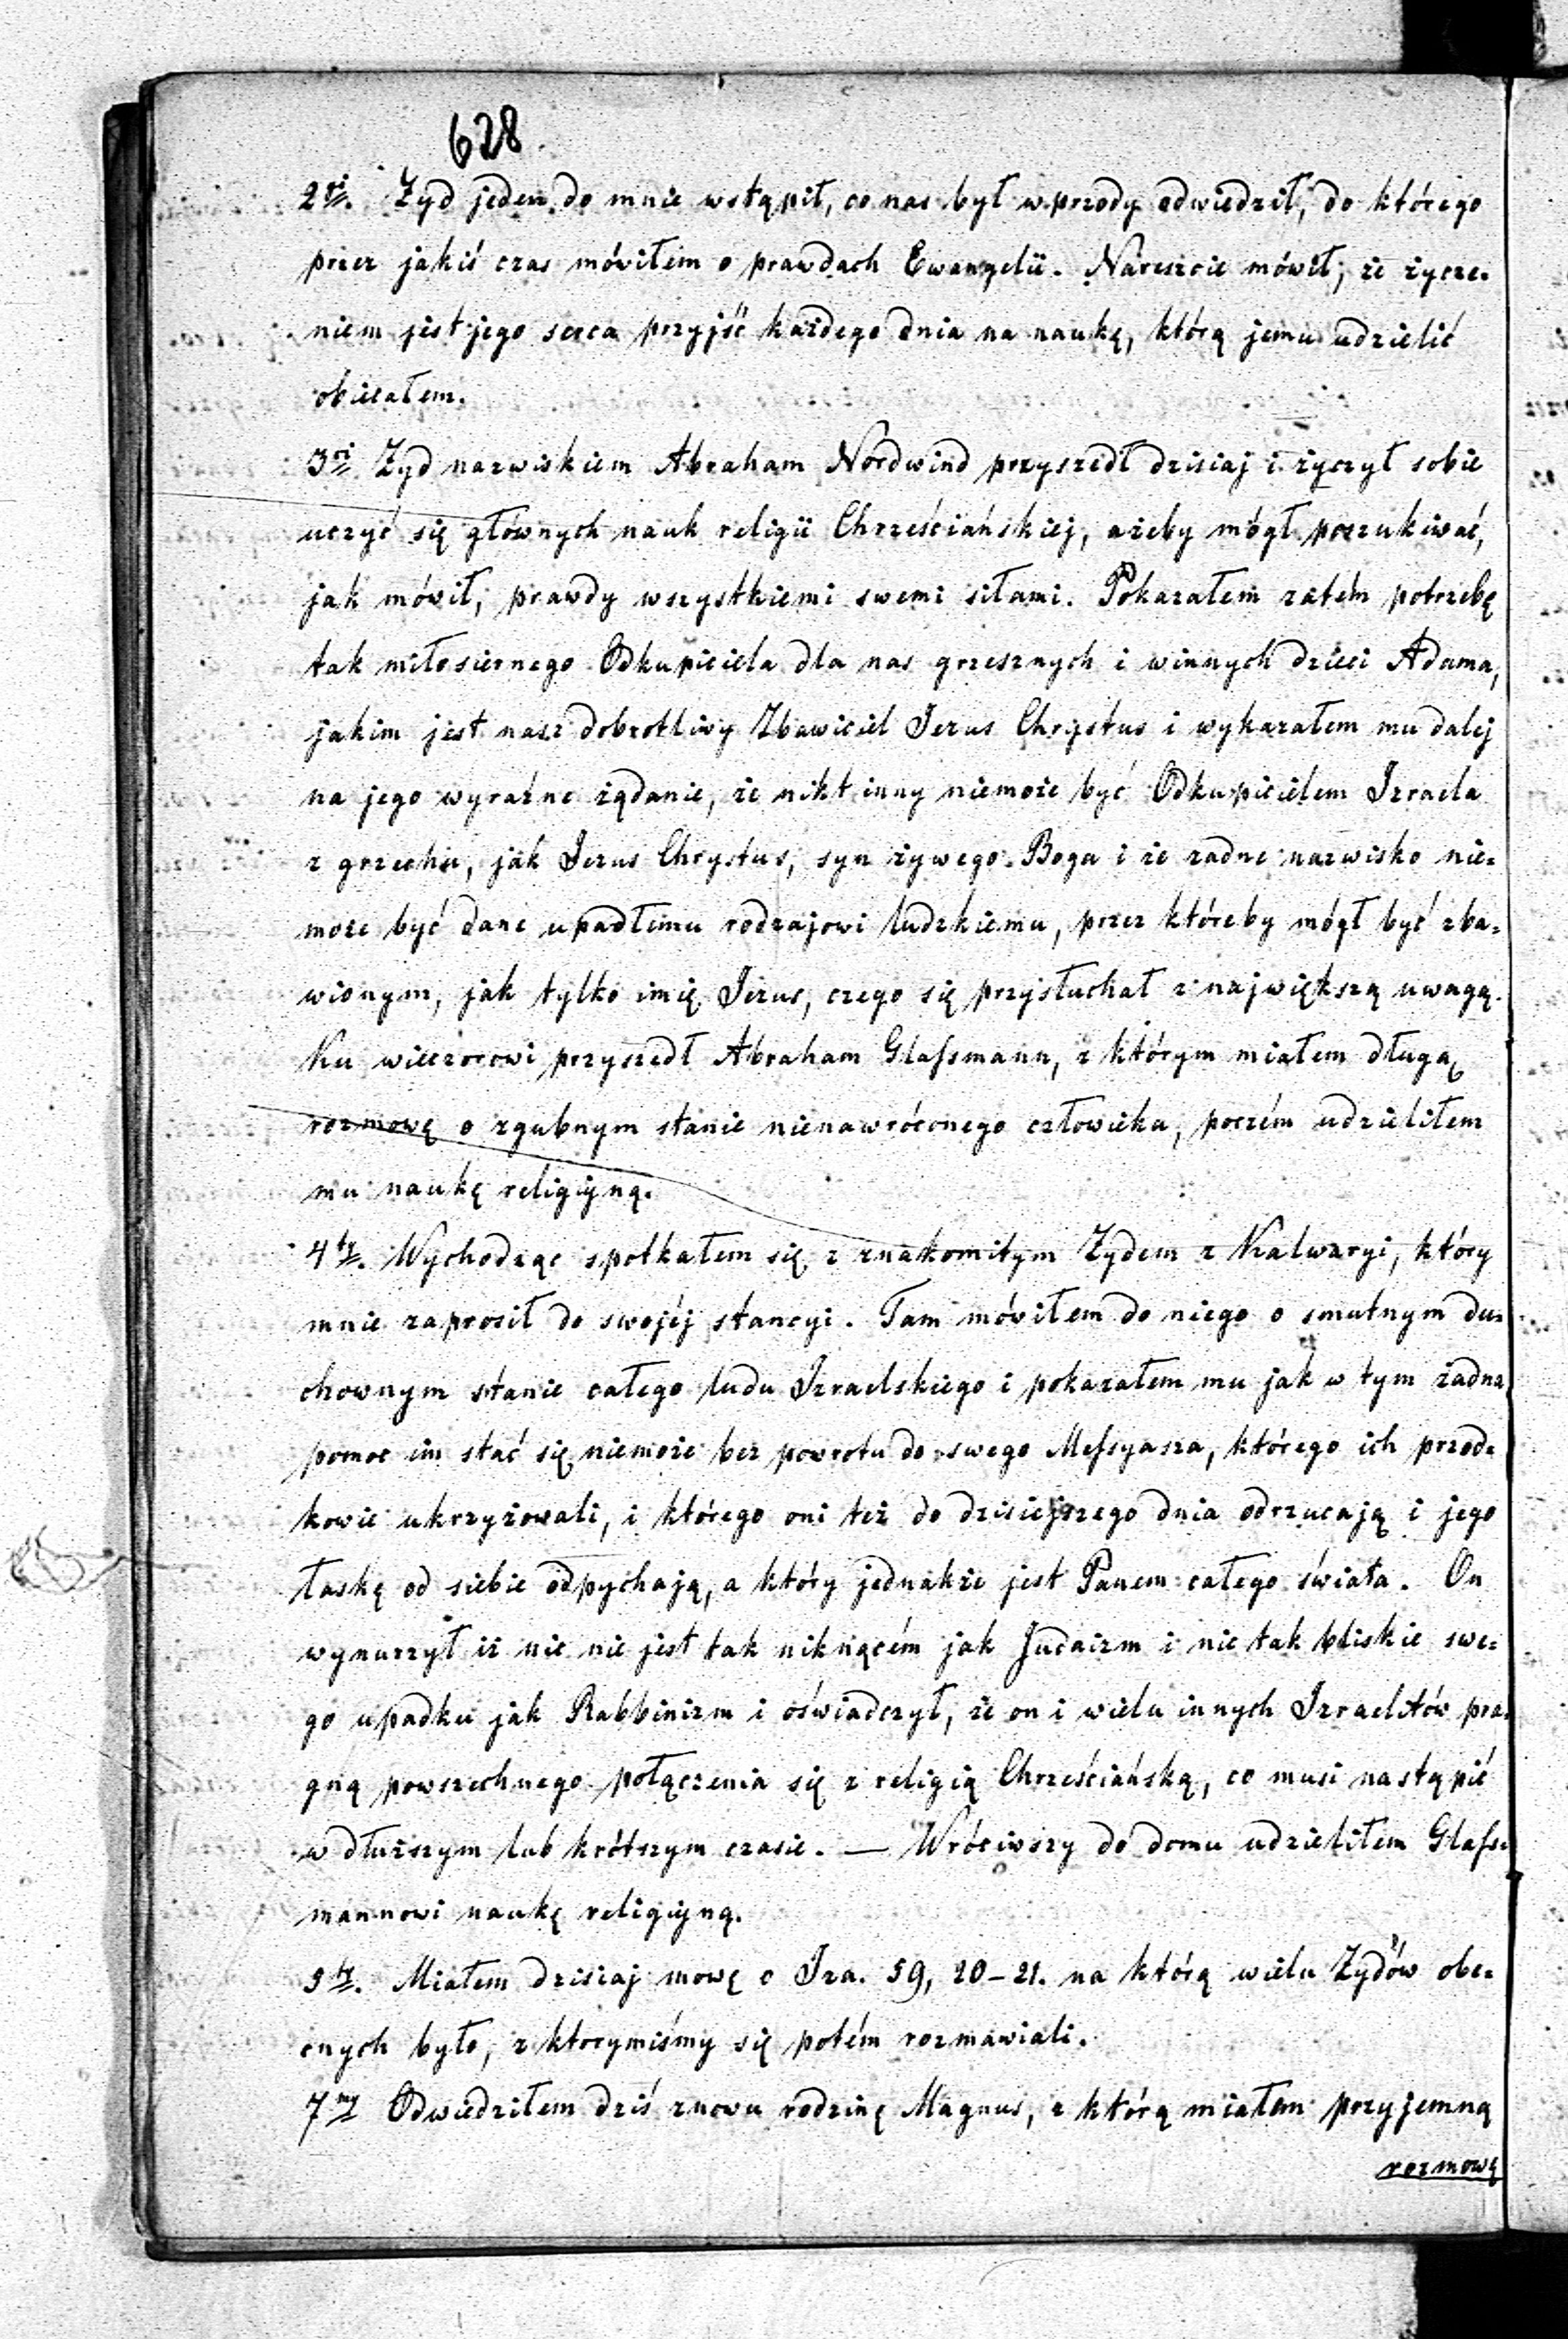 628.
2gi. Żyd jeden do mnie wstąpił, co nas był wprzody odwiedził, do którego
przez jakiś czas mówiłem o prawdach Ewangelii. Nareszcie mówił, że życze-
niem jest jego serca przyjść każdego dnia na naukę, którą jemu udzielić
obiecałem.
3ci Żyd nazwiskiem Abraham Nordwind przyszedł dzisiaj i życzył sobie
uczyć się głównych nauk religii Chrześciańskiej, ażeby mógł poszukiwać,
jak mówił, prawdy wszystkiemi swemi siłami. Pokazałem zatém potrzebę
tak miłosiernego Odkupiciela dla nas grzesznych i winnych dzieci Adama,
jakim jest nasz dobrotliwy Zbawiciel Jezus Chrystus i wykazałem mu dalej
na jego wyraźne żądanie, że nikt inny niemoże być Odkupicielem Izraela
z grzechu, jak Jezus Chrystus, syn żywego Boga i że żadne nazwisko nie-
może być dane upadłemu rodzajowi ludzkiemu, przez któreby mógł być zba-
wionym, jak tylko imię Jezus, czego się przysłuchał z największą uwagą.
Ku wieczorowi przyszedł Abraham Glafsmann, z którym miałem długą
rozmowę o zgubnym stanie nienawróconego człowieka, poczém udzieliłem
mu naukę religijną.
4ty. Wychodząc spotkałem się z znakomitym Żydem z Kalwaryi, który
mnie zaprosił do swojéj stancyi. Tam mówiłem do niego o smutnym du-
chownym stanie całego ludu Izraelskiego i pokazałem mu jak w tym żadna
pomoc im stać się niemoże bez powrotu do swego Mefsyasza, którego ich przod-
kowie ukrzyżowali, i którego oni też do dzisiejszego dnia odrzucają i jego
łaskę od siebie odpychają, a który jednakże jest Panem całego świata. On
wynurzył iż nic nie jest tak niknącém jak Judaizm i nic tak bliskie swe-
go upadku jak Rabbinizm i oświadczył, że on i wielu innych Izraelitów pra-
gną powszechnego połączenia się z religią Chrześciańską, co musi nastąpić
w dłuższym lub krótszym czasie. — Wróciwszy do domu udzieliłem Glafs-
mannowi naukę religijną.
5ty. Miałem dzisiaj mowę o Iza. 59, 20-21. na którą wielu Żydów obe-
cnych było, z ktorymiśmy się potém rozmawiali.
7my Odwiedziłem dziś znowu rodzinę Magnus, z którą miałem przyjemną
rozmowę